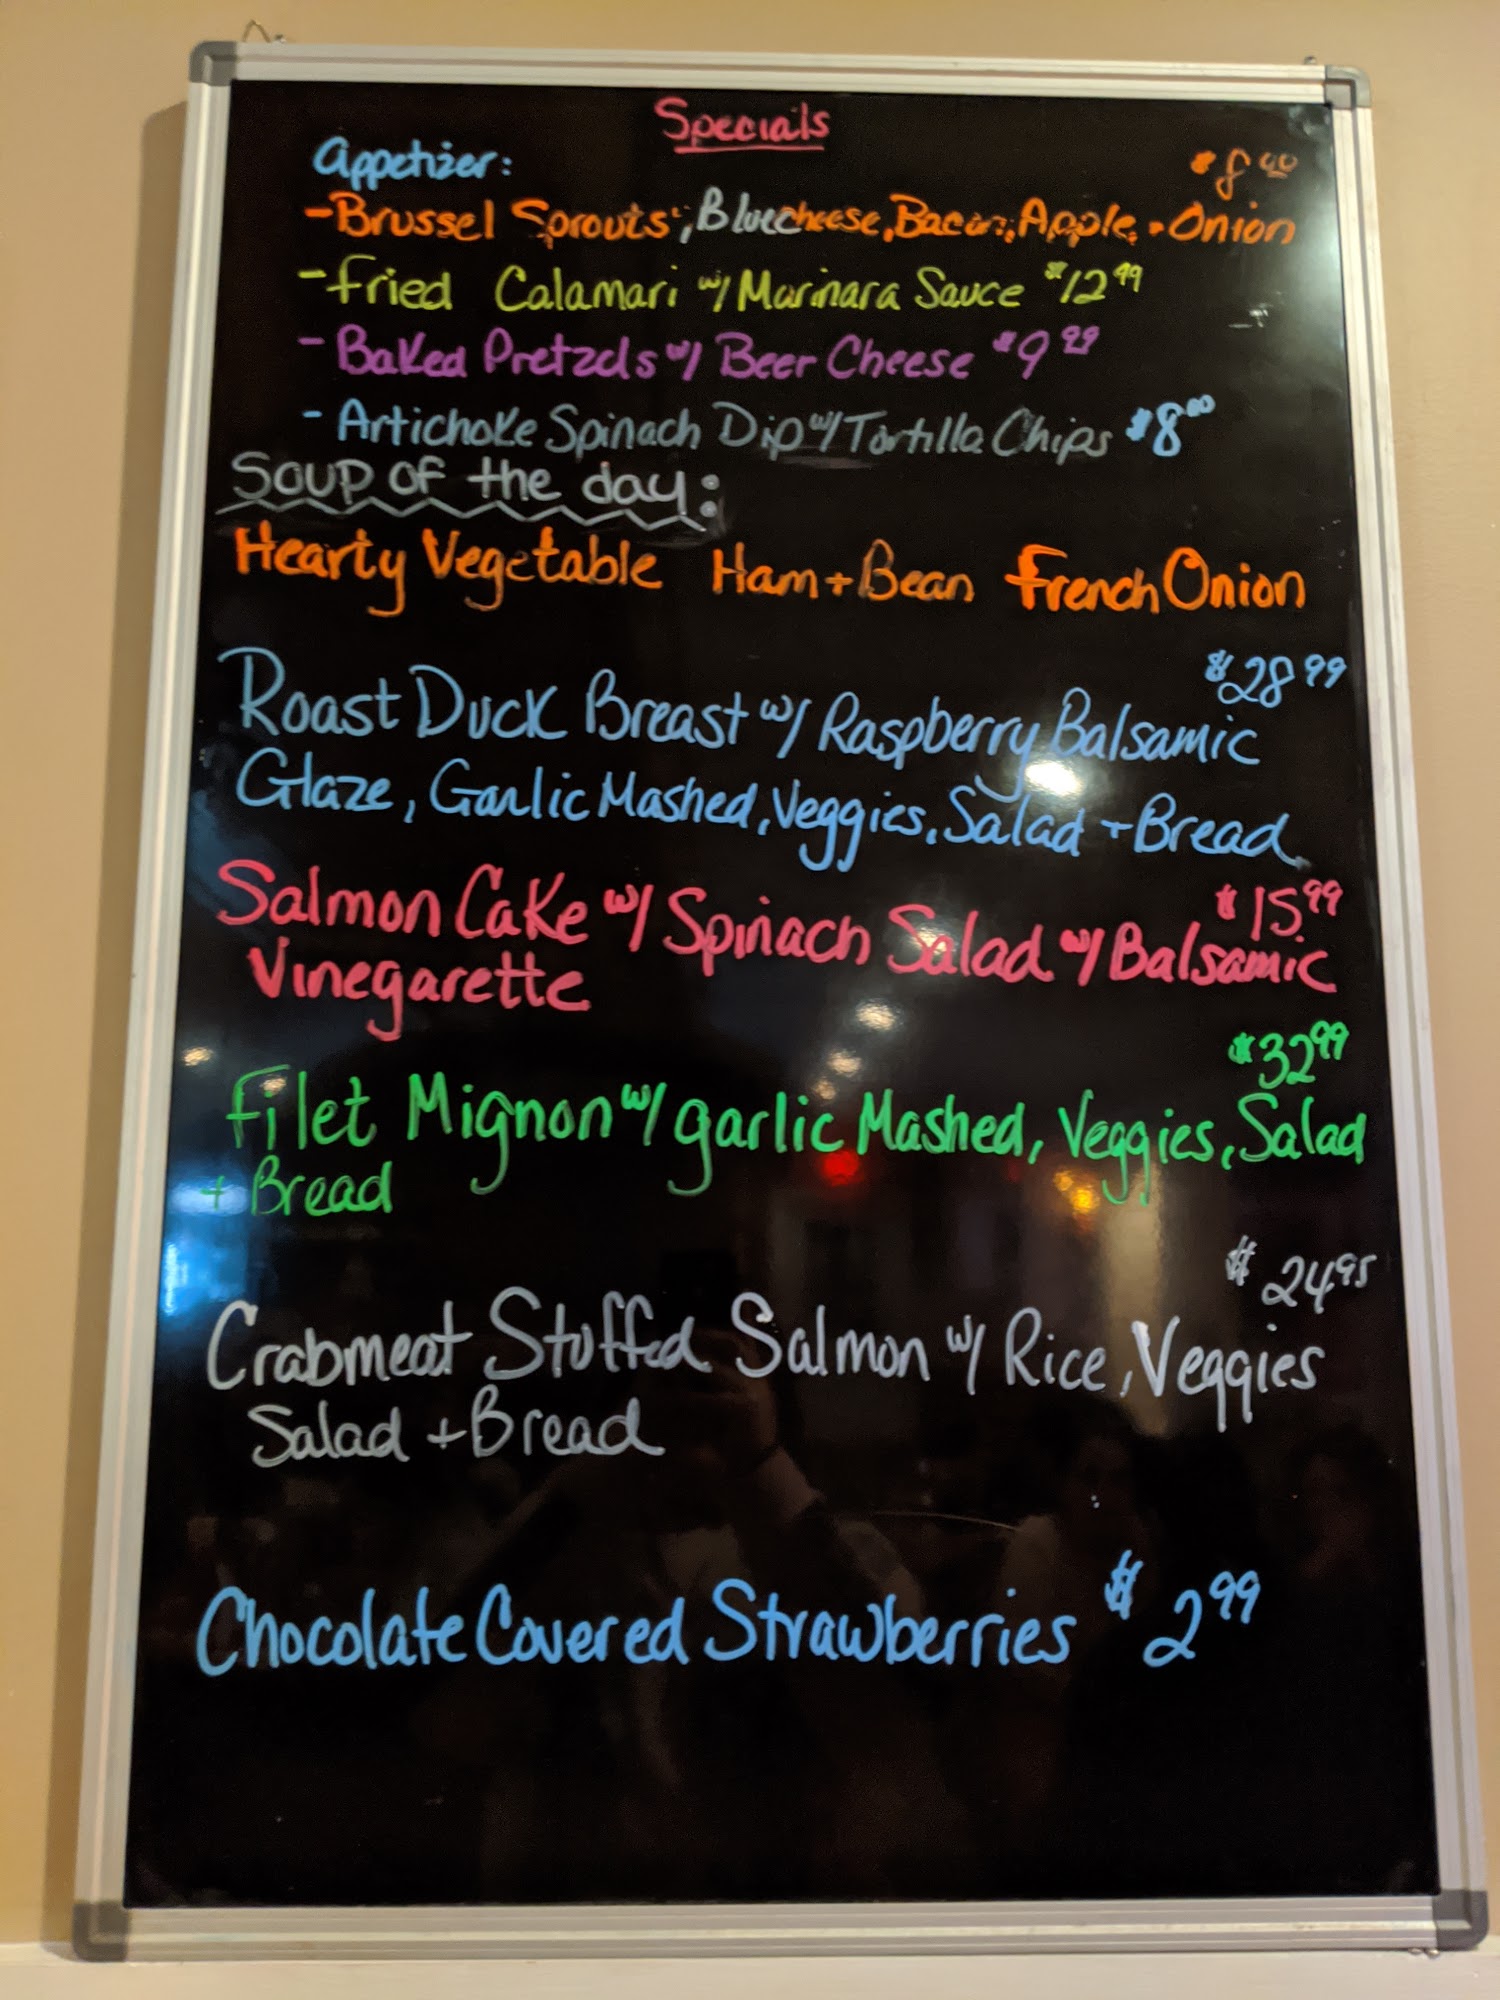 Specials
Appetizer:
$8.00
- Brussel Sprouts, Bluecheese, Bacon, Apple, + Onion
- Fried Calamari w/ Marinara Sauce $12.99
- Baked Pretzels w/ Beer Cheese $9.99
- Artichoke Spinach Dip w/ Tortilla Chips $8.00
Soup of the day:
Hearty Vegetable Ham + Bean French Onion
$28.99
Roast Duck Breast w/ Raspberry Balsamic
Glaze, Garlic Mashed, Veggies, Salad + Bread
$15.99
Salmon Cake w/ Spinach Salad w/ Balsamic
Vinegarette
$32.99
Filet Mignon w/ garlic Mashed, Veggies, Salad
+ Bread
$24.95
Crabmeat Stuffed Salmon w/ Rice, Veggies
Salad + Bread
Chocolate Covered Strawberries $2.99